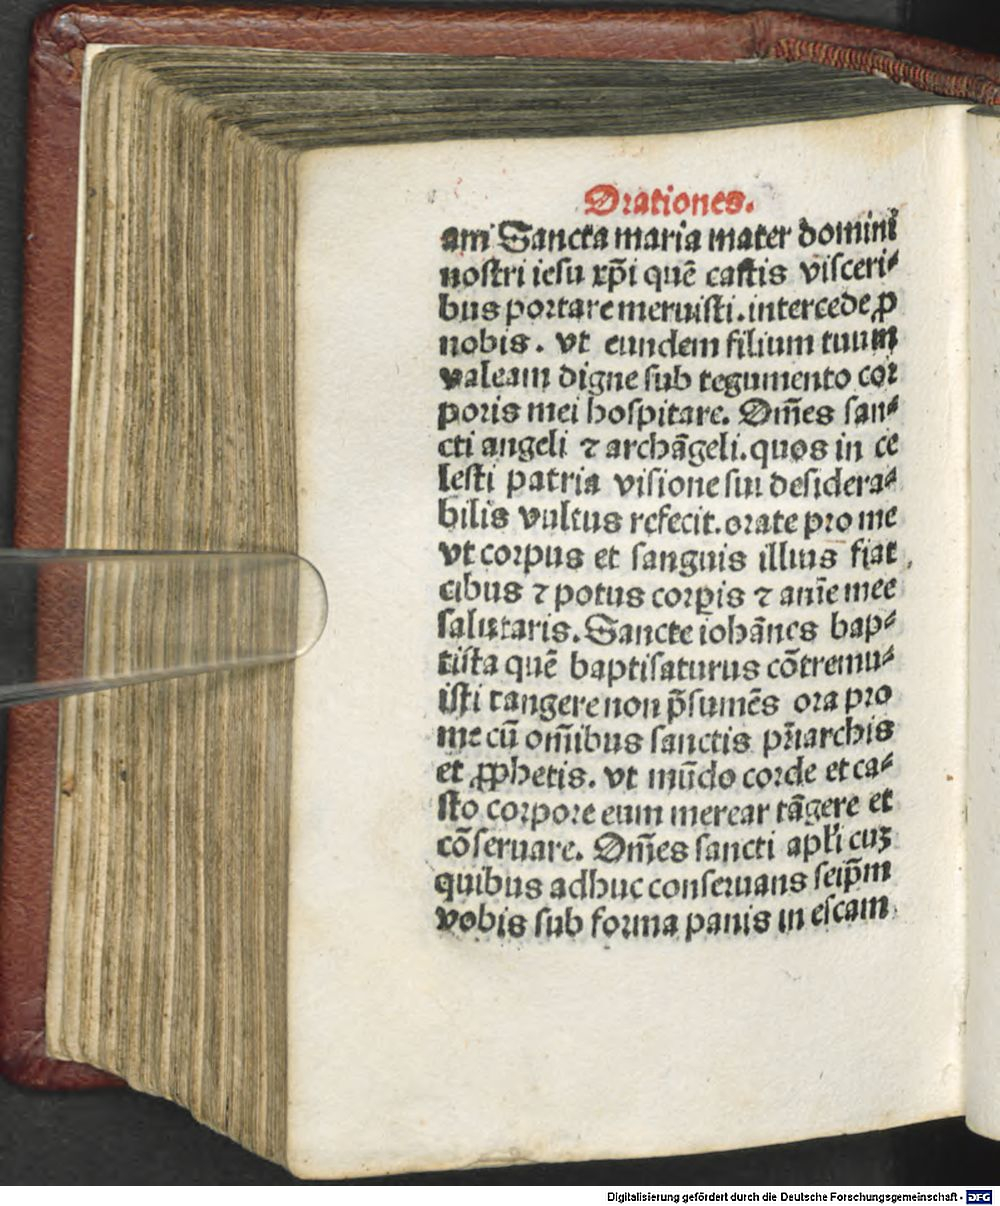 Orationes.
am Sancta maria mater domini
nostri iesu xp̄i quē castis visceri⸗
bus portare meruisti. intercede ꝓ
nobis. vt eundem filium tuum
valeam digne sub tegumento cor
poris mei hospitare. Om̄es san⸗
cti angeli ⁊ archāgeli. quos in ce
lesti patria visione sui desidera⸗
bilis vultus refecit. orate pro me
vt corpus et sanguis illius fiat
cibus ⁊ potus corꝑis ⁊ anīe mee
salutaris. Sancte iohānes bap⸗
tista quē baptisaturus cōtremu⸗
isti tangere non p̄sumēs ora pro
me cū om̄ibus sanctis pr̄iarchis
et ꝓphetis. vt mūdo corde et ca⸗
sto corpore eum merear tāgere et
cōseruare. Om̄es sancti apl'i cuʒ
quibus adhuc conseruans seip̄m
vobis sub forma panis in escam
Digitalisierung gefördert durch die Deutsche Forschungsgemeinschaft - DFG